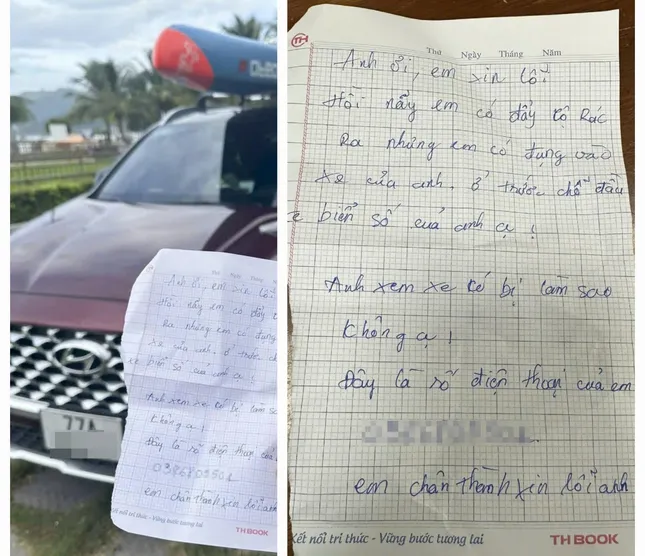 77A
Thứ Ngày
Anh ơi, em xin lỗi
Hồi nẫy em có đẩy
Ra nhưng em có đụng
xe của anh. ở trước
xe biển số của anh ạ !
Anh xem xe có bị làm
không ạ !
Đây là số điện thoại của
em chân thành xin lỗi
Kết nối tri thức - Vững bước tương lai
TH BOOK
TH
Thứ Ngày Tháng Năm
Anh ơi, em xin lỗi
Hồi nẫy em có đẩy cộ Rác
Ra nhưng em có đụng vào
xe của anh. ở trước chỗ đầu
xe biển số của anh ạ !
Anh xem xe có bị làm sao
không ạ !
Đây là số điện thoại của em
em chân thành xin lỗi anh
Kết nối tri thức - Vững bước tương lai
TH BOOK